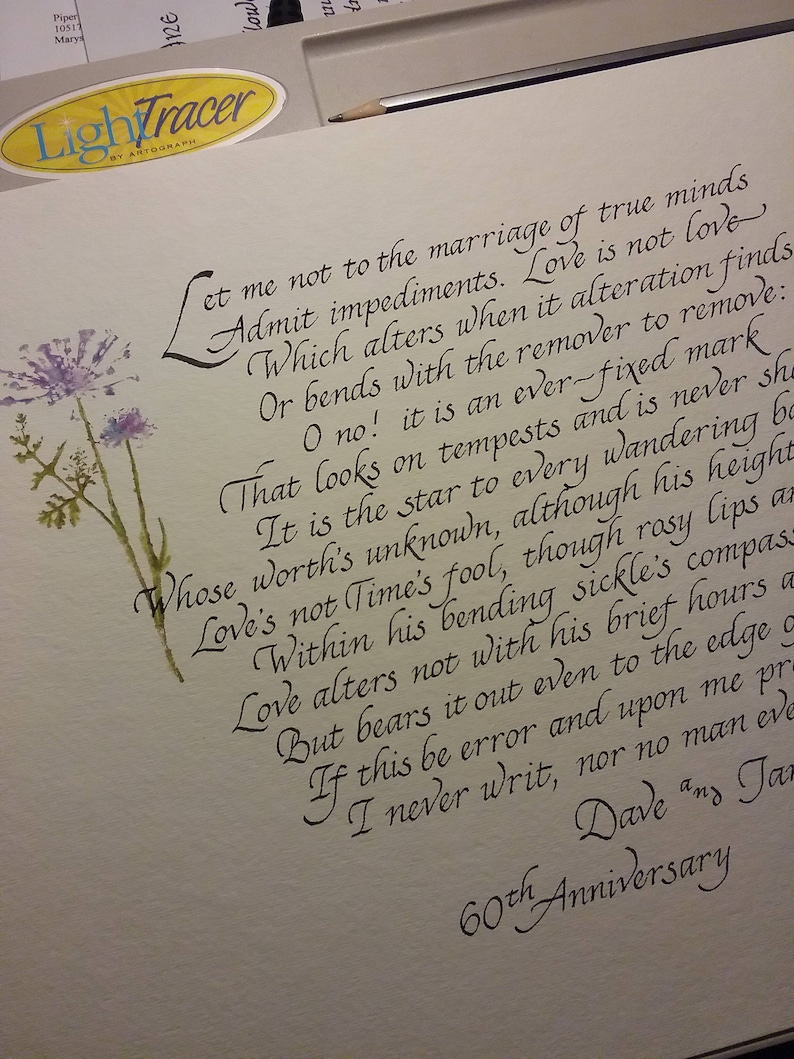 Piper
10517
Marys
LightTracer
BY ARTOGRAPH
Let me not to the marriage of true minds
Admit impediments. Love is not love
Which alters when it alteration finds
Or bends with the remover to remove:
O no! it is an ever-fixed mark
That looks on tempests and is never
It is the star to every wandering
Whose worth's unknown, although his height
Love's not Time's fool, though rosy lips
Within his bending sickle's compass
Love alters not with his brief hours
But bears it out even to the edge
If this be error and upon me
I never writ, nor no man
Dave and
60th Anniversary